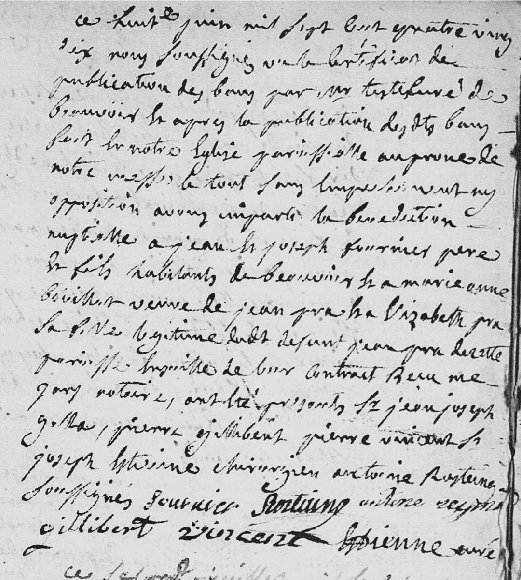 ce huit juin mil sept cent quatre vingt
dix nous soussigné vu le certificat de
publication des bans par mr curé de
beauvoir et apres la publication desdts bans
fait en notre Eglise paroissialle au prone de
notre messe le tout sans empechement ny
opposition avons imparti la benediction
nuptialle a jean et joseph fournier pere
et fils habitants de beauvoir et a marianne
veuve de jean pra et a Elizabeth pra
sa fille legitime dudt defunt jean pra de cette
paroisse ensuitte de leur contract Recu me
notaire, ont été presents sr jean joseph
pierre gillibert pierre vincent et
joseph Etienne chirurgien antoine Rostaing
soussignés fournier Rostaing antoine
gillibert vincent Etienne curé
ce